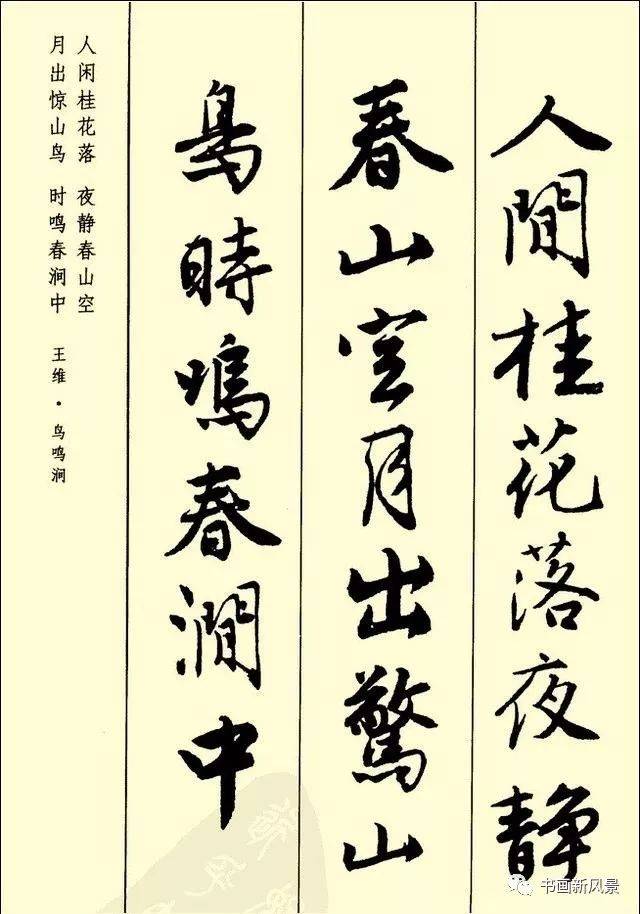 人閒桂花落夜静
春山空月出驚山
鳥時鳴春澗中
人闲桂花落 夜静春山空
月出惊山鸟 时鸣春涧中 王维·鸟鸣涧
书画新风景